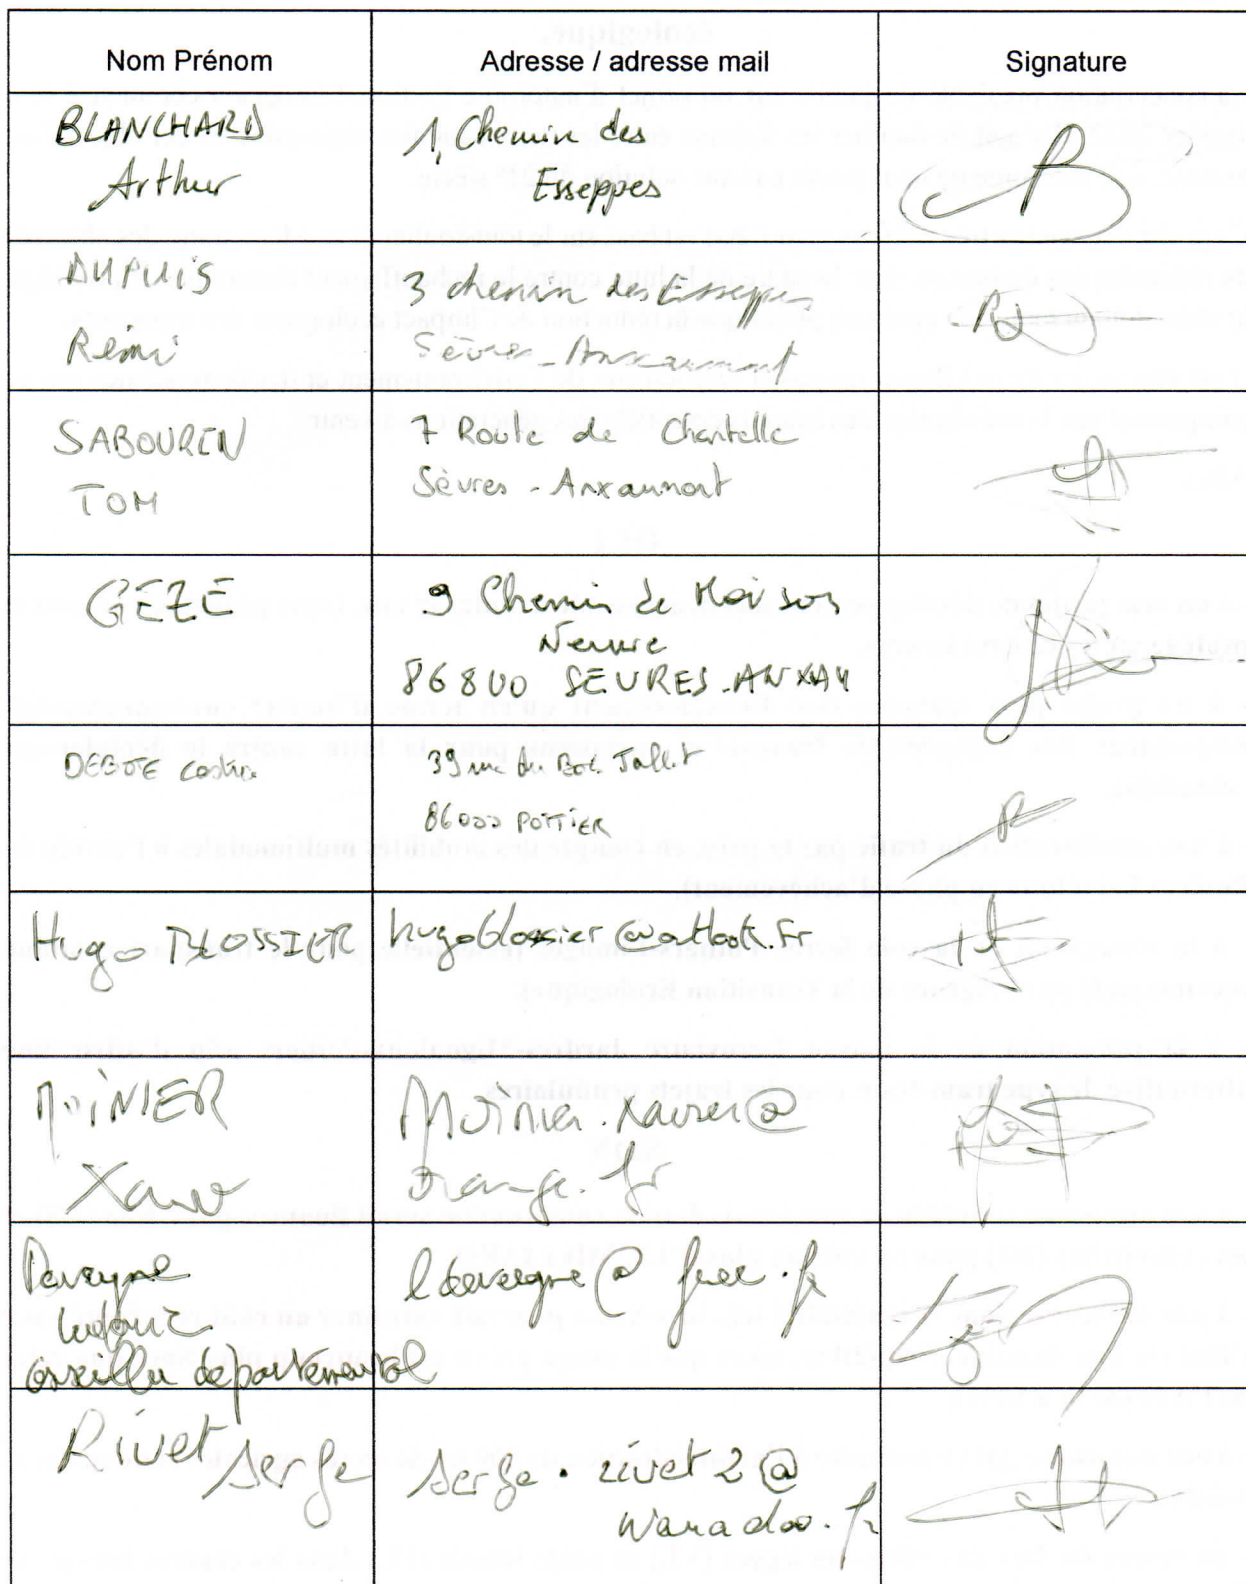 Nom Prénom
Adresse / adresse mail
Signature
BLANCHARD
Arthur
1, Chemin des
Esseppes
DUPUIS
Rémi
3 chemin des Esseppes
Sèvres-Anxaumont
SABOURIN
TOM
7 Route de Chantelle
Sèvres-Anxaumont
GEZE
9 Chemin de Maison
Neuve
86800 SEVRES-ANXAU
39 rue du
86000 POITIER
Hugo BLOSSIER
hugoblossier@outlook.fr
MOINIER
Xavier
Moinier.Xavier@
orange.fr
Devergne
Ludovic
Conseiller départemental
ldevergne@free.fr
Rivet
Serge
Serge.rivet2@
wanadoo.fr